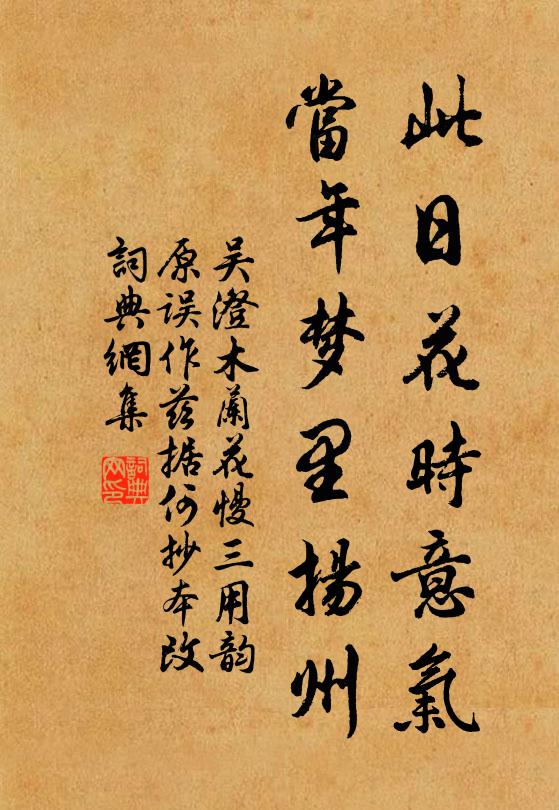 此日花時意氣
當年梦里揚州
吴澄木蘭花慢三用韵
原误作茲据何抄本改
詞典網集
詞典網印